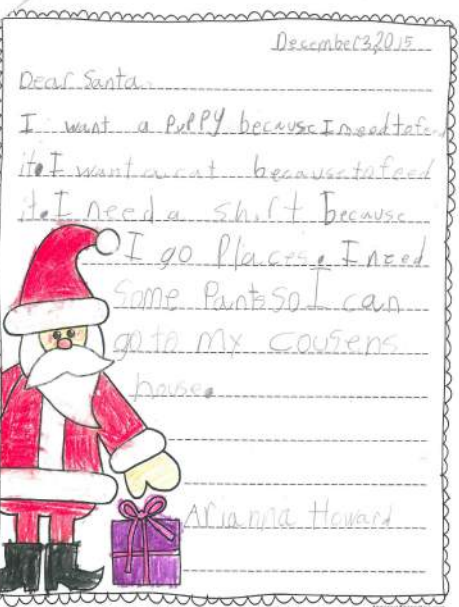 December 3, 2015
Dear Santa
I want a PuPPY because I need to feed
it. I want a cat because to feed
it. I need a shirt because
I go Places. I need
Some Pants So I can
go to my cousens
house.
Arianna Howard